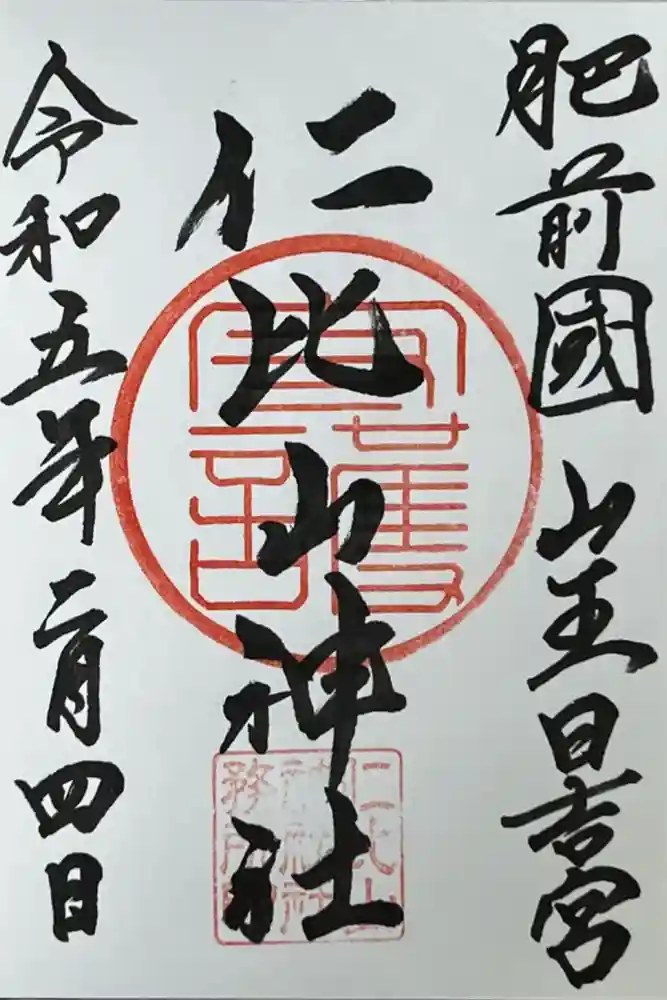 肥前國 山王日吉宮
仁比山神社
令和五年二月四日
仁比山
神社社
務所印